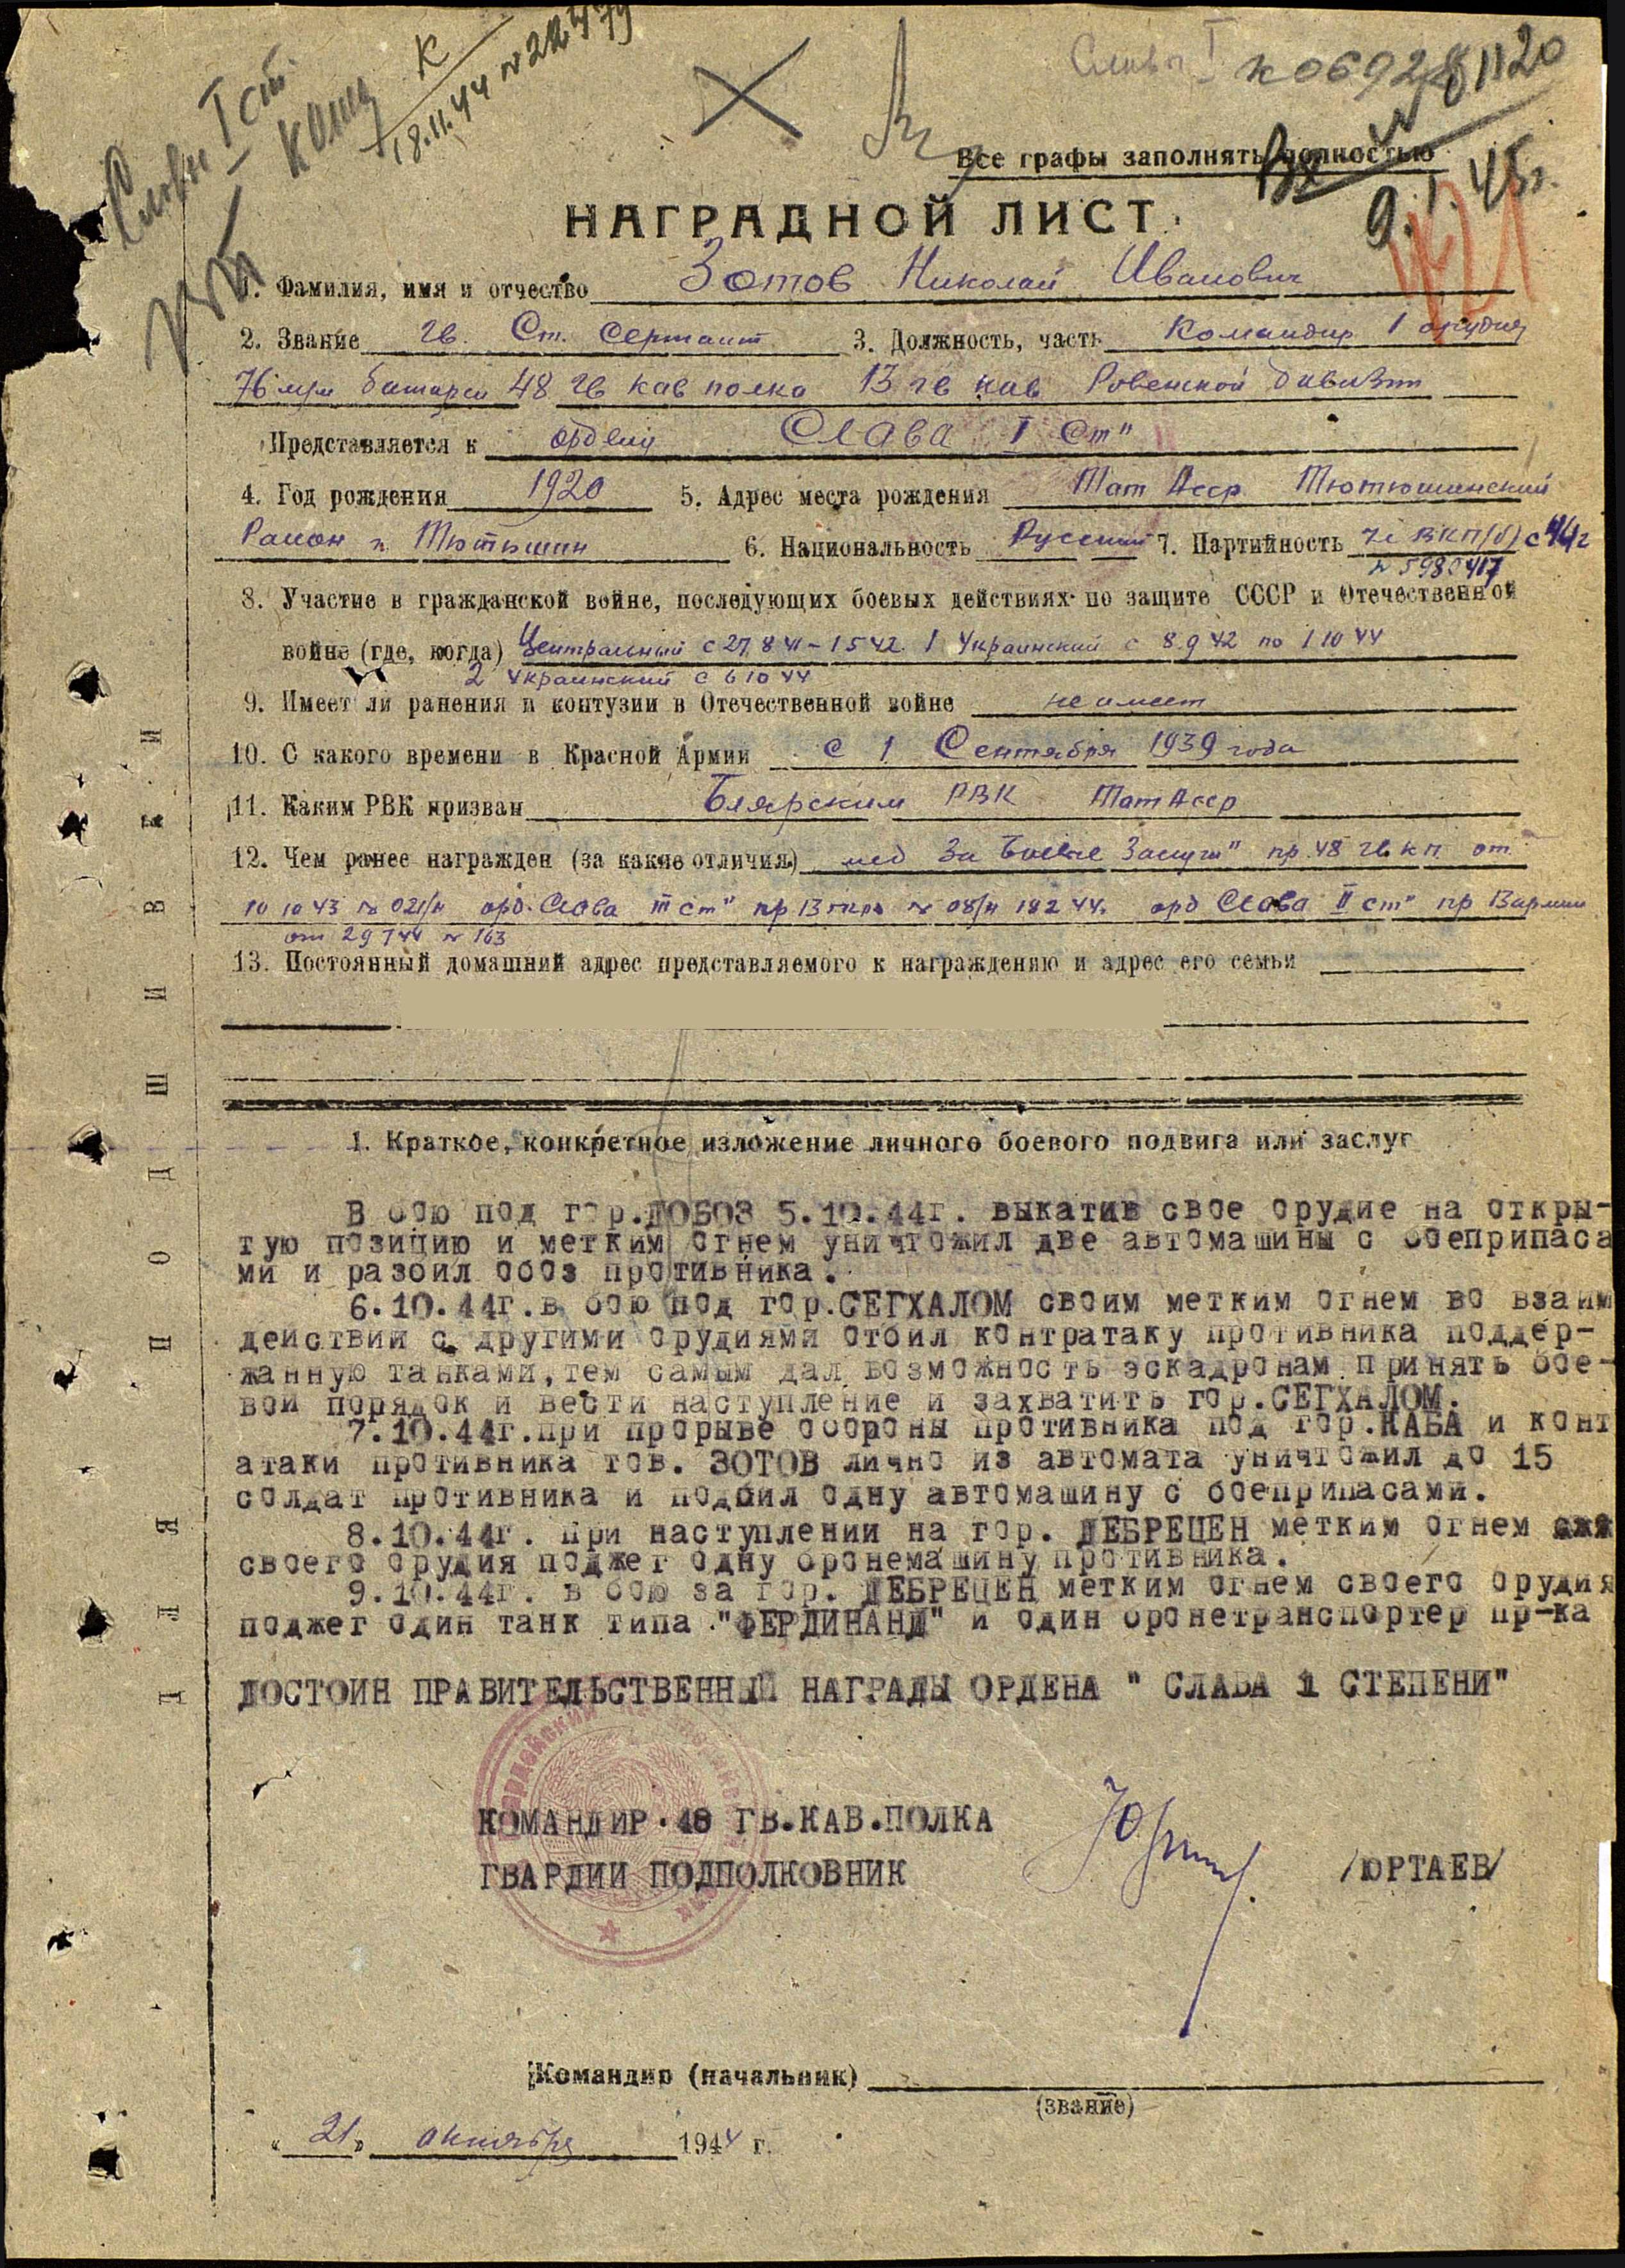 Славы I ст.
К
18.11.44 N 22479
Славы I К0692
N 81120
Вх
9.1.45г.
Все графы заполнять полностью
НАГРАДНОЙ ЛИСТ
1. Фамилия, имя и отчество Зотов Николай Иванович
2. Звание гв. Ст. Сержант 3. Должность, часть Командир 1 орудия
76 м/м батареи 48 гв кав полка 13 гв кав Ровенской дивизии
Представляется к ордену Слава I Ст"
4. Год рождения 1920 5. Адрес места рождения Тат Асср Тютюшинский
Район п. Тютюшин 6. Национальность Русский 7. Партийность ВКП(б) с 44г
8. Участие в гражданской войне, последующих боевых действиях по защите СССР и Отечественной
войне (где, когда) Центральный с 27.8 41 - 1 5 42. 1 Украинский с 8.9 42 по 1 10 44
2 Украинский с 6 10 44
9. Имеет ли ранения и контузии в Отечественной войне не имеет
10. С какого времени в Красной Армии с 1 Сентября 1939 года
11. Каким РВК призван Билярским РВК ТатАсср
12. Чем ранее награжден (за какие отличия) мед За Боевые Заслуги" пр. 48 гв. кп от
10 10 43 N 021/н орд. Слава III ст" пр 13 N 08/н 18 2 44. орд Слава II ст" пр 13 армии
от 29 7 44 N 163
13. Постоянный домашний адрес представляемого к награждению и адрес его семьи
1. Краткое, конкретное изложение личного боевого подвига или заслуг
В бою под гор.ДОБОЗ 5.10.44г. выкатив свое орудие на откры-
тую позицию и метким огнем уничтожил две автомашины с боеприпаса
ми и разбил обоз противника.
6.10.44г.в бою под гор.СЕГХАЛОМ своим метким огнем во взаим
действии с другими орудиями отбил контратаку противника поддер-
жанную танками,тем самым дал возможность эскадронам принять бое-
вой порядок и вести наступление и захватить гор.СЕГХАЛОМ.
7.10.44г.при прорыве обороны противника под гор.КАБА и конт
атаки противника тов. ЗОТОВ лично из автомата уничтожил до 15
солдат противника и подбил одну автомашину с боеприпасами.
8.10.44г. при наступлении на гор. ДЕБРЕЦЕН метким огнем
своего орудия поджег одну бронемашину противника.
9.10.44г. в бою за гор. ДЕБРЕЦЕН метким огнем своего орудия
поджег один танк типа "ФЕРДИНАНД" и один бронетранспортер пр-ка
ДОСТОИН ПРАВИТЕЛЬСТВЕННЫЙ НАГРАДЫ ОРДЕНА " СЛАВА 1 СТЕПЕНИ"
КОМАНДИР 48 ГВ.КАВ.ПОЛКА
ГВАРДИИ ПОДПОЛКОВНИК /ЮРТАЕВ/
Командир (начальник)
(звание)
"21" октября 1944 г.
ДЛЯ ПОДШИВКИ